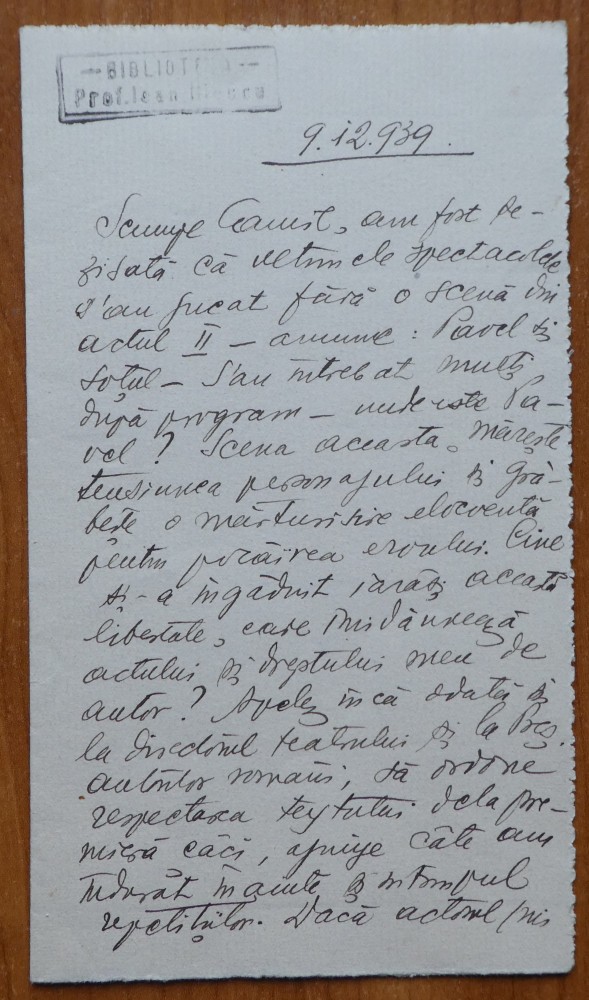 BIBLIOTECA
Prof. Ioan
9.12.939.
Scumpe Camil, am fost se-
zisată că ultimele spectacole
s'au jucat fără o scenă din
actul II – anume : Pavel și
soțul – S'au întrebat mulți
după program – unde este Pa-
vel ? Scena aceasta, mărește
tensiunea personajului și gră-
bește o mărturisire elocventă
pentru pocăirea eroului. Cine
și-a îngăduit iarăși această
libertate, care
actului și dreptului meu de
autor ? Apelez încă odată și
la directorul teatrului și la Preș.
autorilor români, să ordone
respectarea textului dela pre-
mieră căci, ajunge câte am
îndurat înainte și în timpul
repetițiilor. Dacă actorul